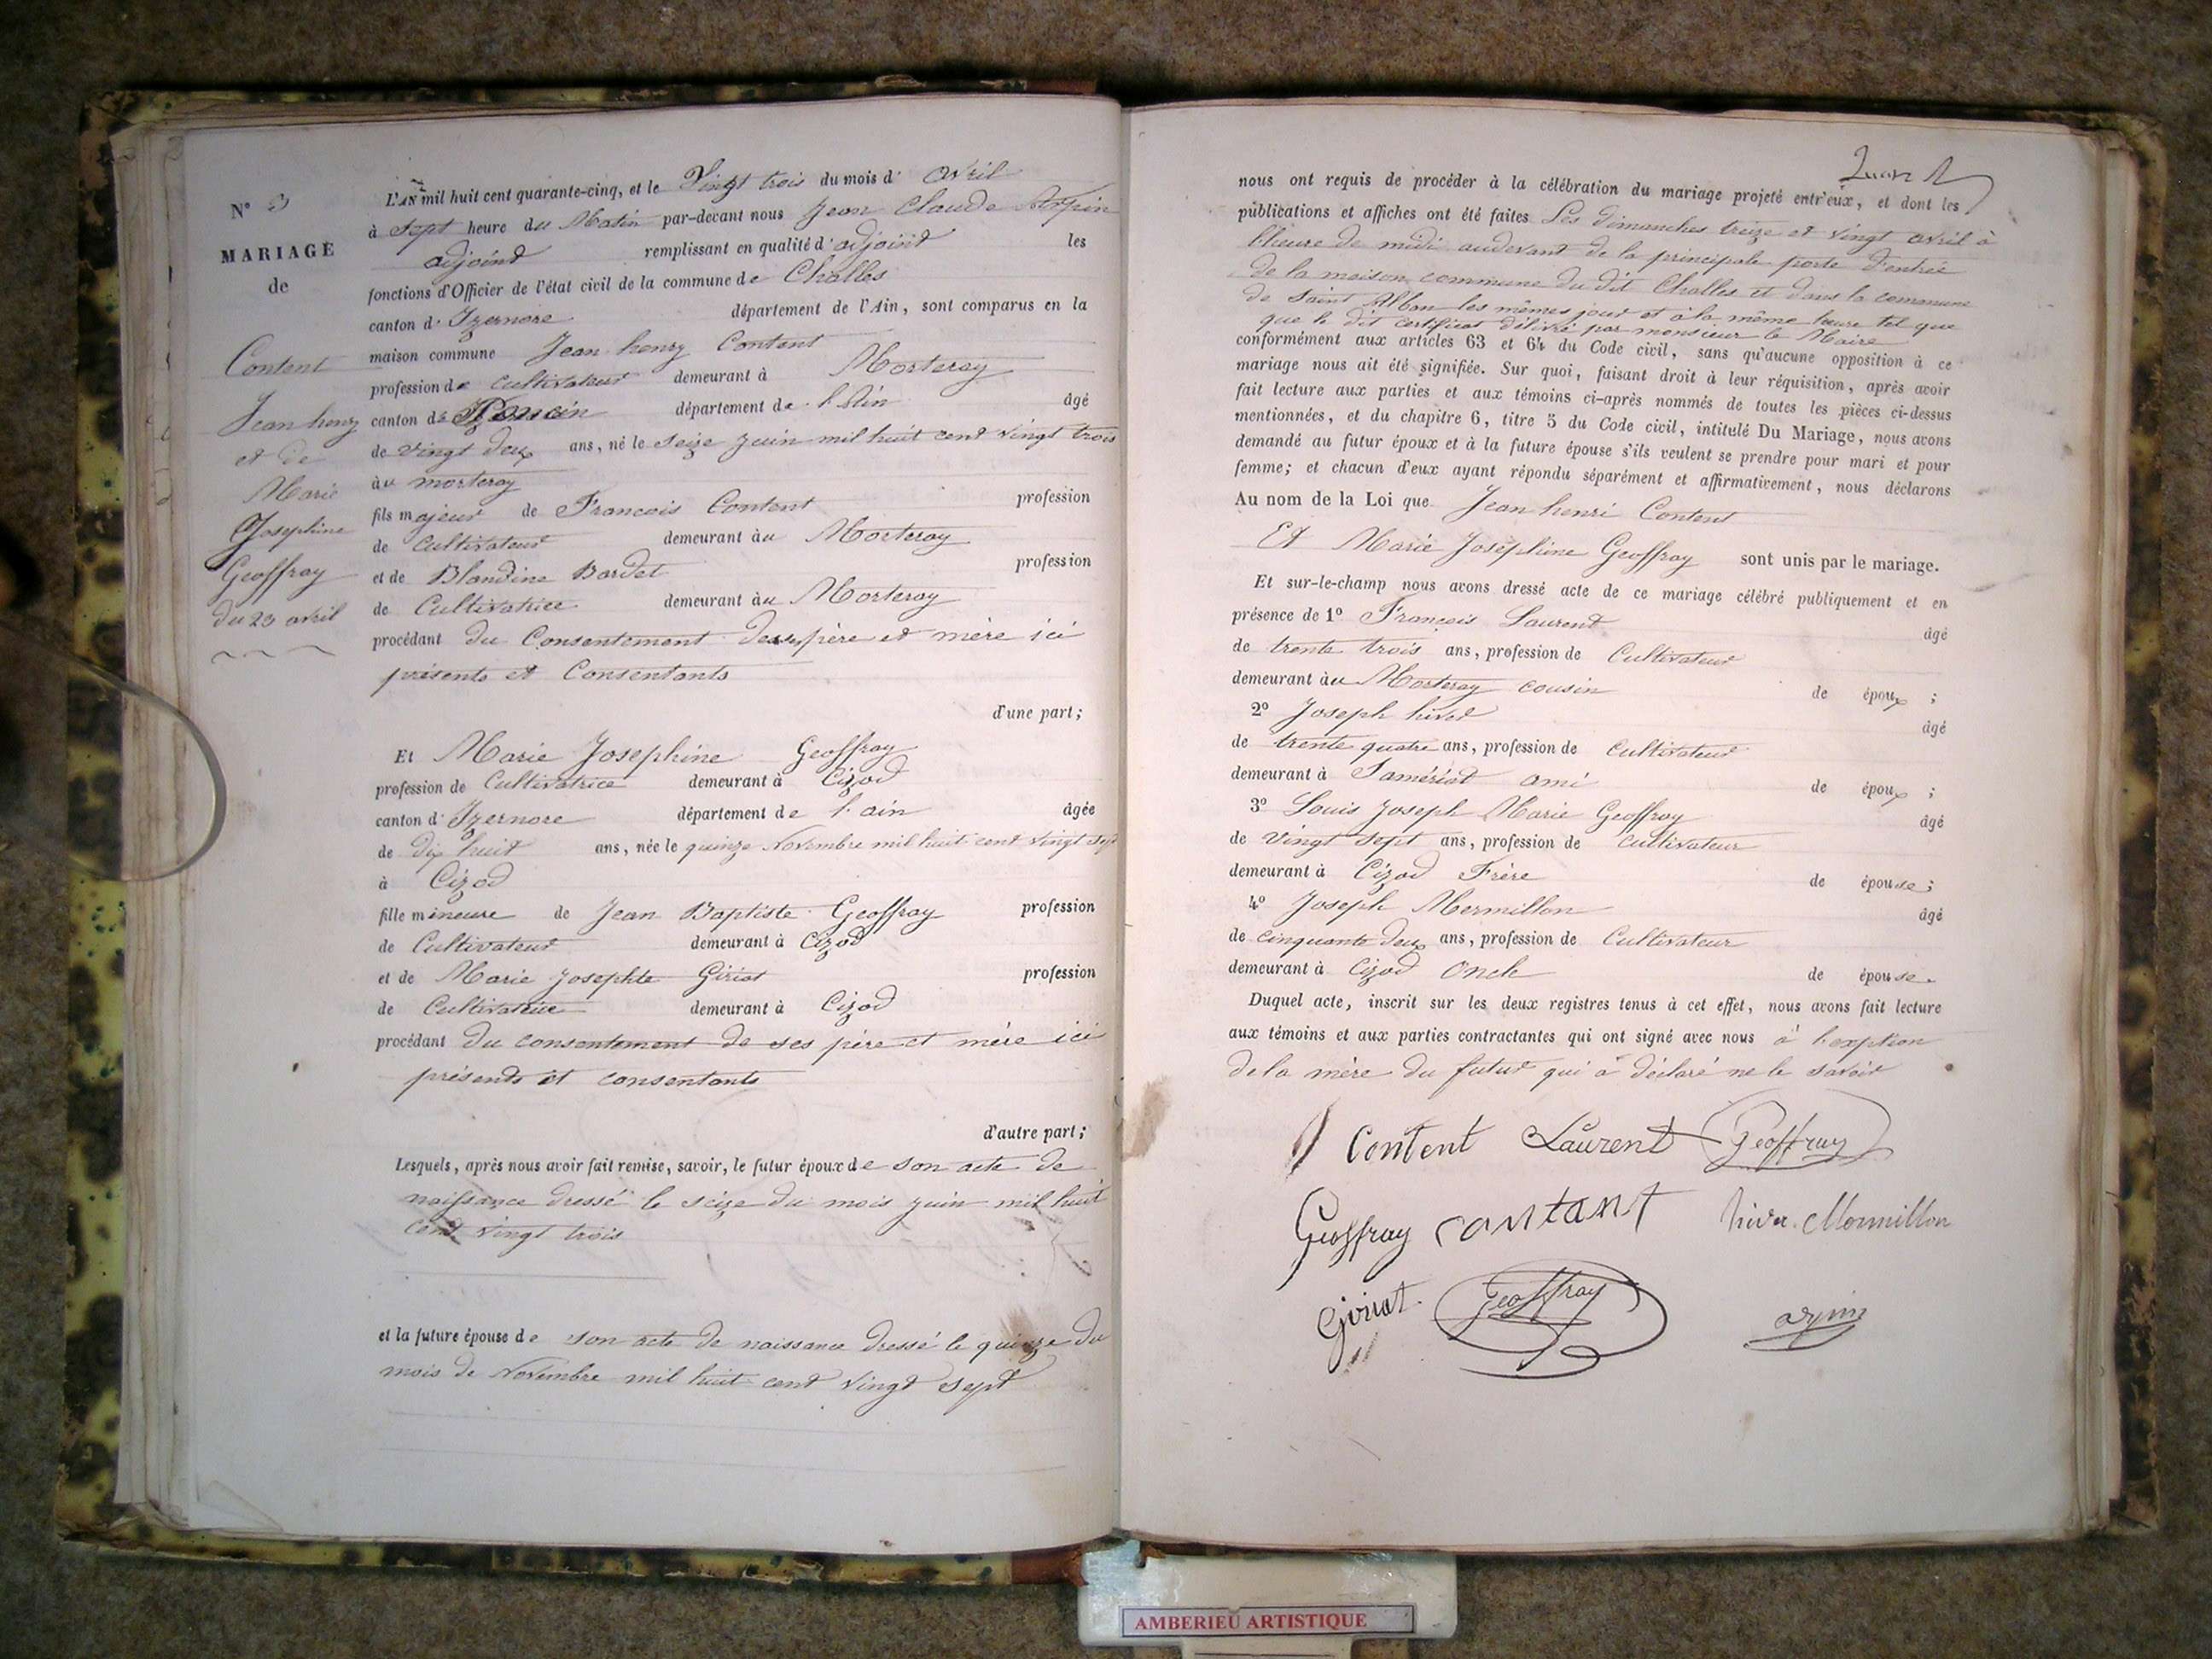 N° 3
MARIAGE
de
Content
Jean henry
et de
Marie
Josephine
Geoffray
du 23 avril
L'AN mil huit cent quarante-cinq, et le Vingt trois du mois d' avril
à Sept heure du Matin par-devant nous Jean Claude Arpin
adjoint remplissant en qualité d'adjoint les
fonctions d'Officier de l'état civil de la commune de Challes
canton d' Izernore département de l'Ain, sont comparus en la
maison commune Jean henry Content
profession de cultivateur demeurant à Morteray
canton de Poncin département de l'Ain âgé
de vingt deux ans, né le seize juin mil huit cent vingt trois
àu morteray
fils majeur de Francois Content profession
de cultivateur demeurant àu Morteray
et de Blandine Bardet profession
de Cultivatrice demeurant àu Morteray
procédant du Consentement de ses père et mère ici
présents et Consentants
d'une part;
Et Marie Josephine Geoffray
profession de Cultivatrice demeurant à Cizod
canton d' Izernore département de l'ain âgée
de dix huit ans, née le quinze Novembre mil huit cent vingt sept
à Cizod
fille mineure de Jean Baptiste Geoffray profession
de Cultivateur demeurant à Cizod
et de Marie Josephte Giriat profession
de Cultivatrice demeurant à Cizod
procédant du consentement de ses père et mère ici
présents et consentants
d'autre part;
Lesquels, après nous avoir fait remise, savoir, le futur époux de son acte de
naissance dressé le seize du mois juin mil huit
cent vingt trois
et la future épouse de son acte de naissance dressé le quinze du
mois de Novembre mil huit cent vingt sept
nous ont requis de procéder à la célébration du mariage projeté entr'eux, et dont les
publications et affiches ont été faites Les dimanches treize et vingt avril à
l'heure de midi audevant de la principale porte d'entrée
de la maison commune du dit Challes et dans la commune
de Saint Alban les mêmes jour et à la même heure tel que
que le dit certificat délivré par monsieur le Maire
conformément aux articles 63 et 64 du Code civil, sans qu'aucune opposition à ce
mariage nous ait été signifiée. Sur quoi, faisant droit à leur réquisition, après avoir
fait lecture aux parties et aux témoins ci-après nommés de toutes les pièces ci-dessus
mentionnées, et du chapitre 6, titre 5 du Code civil, intitulé Du Mariage, nous avons
demandé au futur époux et à la future épouse s'ils veulent se prendre pour mari et pour
femme; et chacun d'eux ayant répondu séparément et affirmativement, nous déclarons
Au nom de la Loi que Jean henri Content
Et Marie Joséphine Geoffray sont unis par le mariage.
Et sur-le-champ nous avons dressé acte de ce mariage célébré publiquement et en
présence de 1° François Laurent âgé
de trente trois ans, profession de Cultivateur
demeurant àu Morteray cousin de époux ;
2° Joseph hivert âgé
de trente quatre ans, profession de Cultivateur
demeurant à Samériat ami de époux ;
3° Louis Joseph Marie Geoffray âgé
de Vingt sept ans, profession de Cultivateur
demeurant à Cizod Frère de épouse;
4° Joseph Mermillon âgé
de cinquante deux ans, profession de Cultivateur
demeurant à Cizod Oncle de épouse.
Duquel acte, inscrit sur les deux registres tenus à cet effet, nous avons fait lecture
aux témoins et aux parties contractantes qui ont signé avec nous à l'exption
de la mère du futur qui à déclaré ne le savoir
Content Laurent Geoffray
Geoffray contant hiver Mermillon
Girirat Geoffray arpin
AMBERIEU ARTISTIQUE